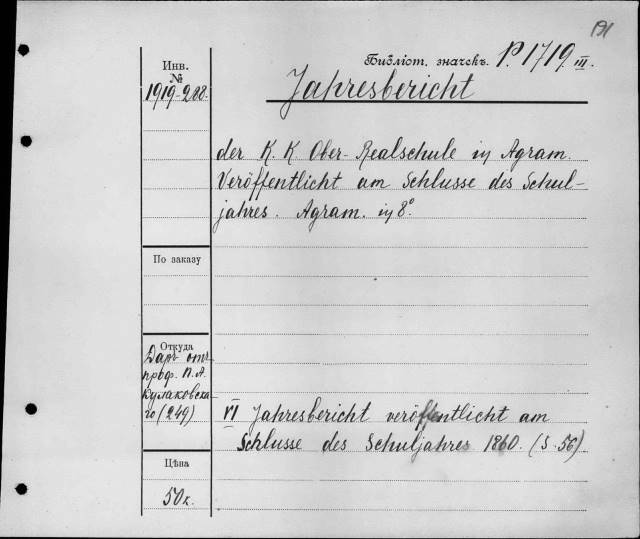 191
Библіот. значекъ. P. 1719 III.
Инв.
№
1919-288.
Jahresbericht
der K. K Ober-Realschule in Agram.
Veröffentlicht am Schlusse des Schul-
jahres. Agram. in 8°.
По заказу
Откуда
Даръ отъ
проф. П. А.
Кулаковска-
го (249)
VI Jahresbericht veröffentlicht am
Schlusse des Schuljahres 1860. (S. 56)
Цѣна
50 к.